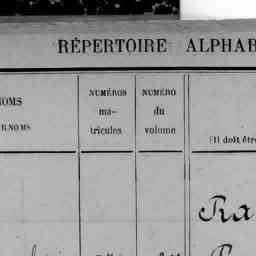 RÉPERTOIRE ALPHAB
NOMS
RNOMS
NUMÉROS
ma-
tricules
NUMÉRO
du
volume
(Il doit êtr
Ra